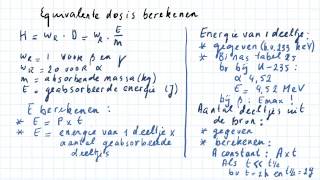 Equivalente dosis berekenen
H = wR · D = wR · E/m
wR = 1 voor β en γ
wR = 20 voor α
m = absorberende massa (kg)
E = geabsorbeerde energie (J)
E berekenen:
* E = P x t
* E = energie van 1 deeltje x
aantal geabsorbeerde
deeltjes
Energie van 1 deeltje:
* gegeven (b.v. 233 keV)
* Binas tabel 25
bv bij U-235:
α 4,52
E = 4,52 MeV
bij β: Emax!
Aantal deeltjes uit
de bron:
* gegeven
* berekenen:
A constant: A x t
Als t << t½
bv t = 2h en t½ = 2j